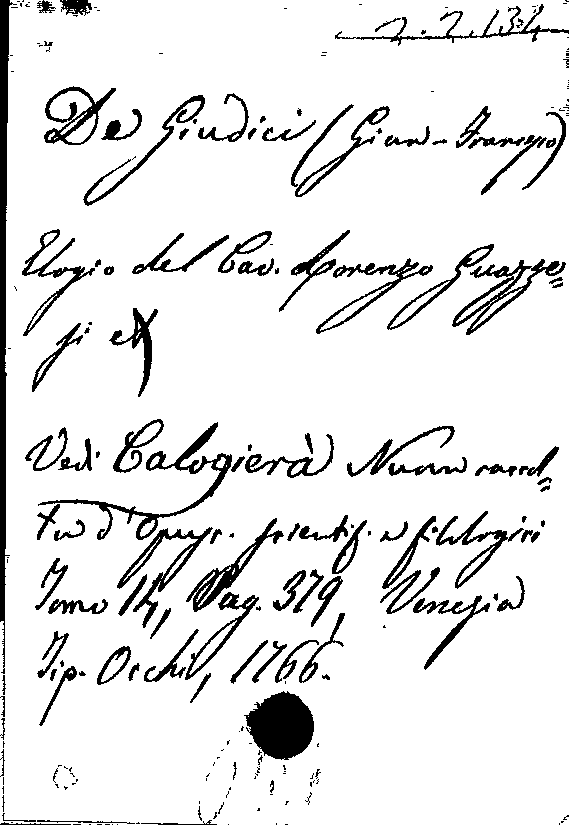 2.2.134
De Giudici (Gian-Francesco)
Elogio del Cav. Lorenzo Guazze=
si
Vedi Calogierà Nuova raccol=
ta d'Opusc. scientif. e filologici
Tomo 14, Pag. 379, Venezia
Tip. Occhi, 1766.